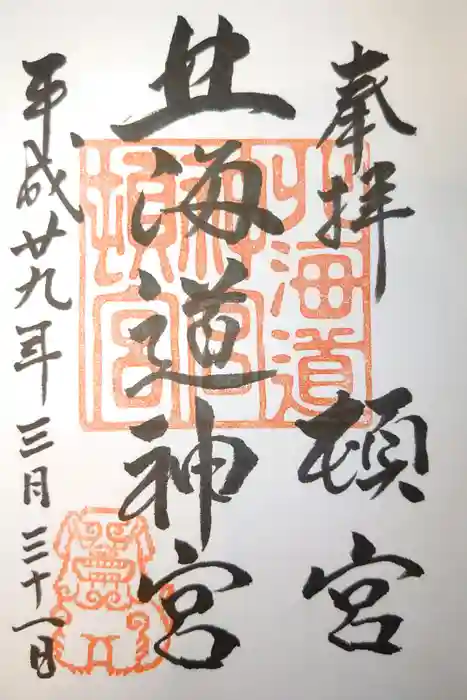 奉拝
頓宮
北海道神宮
平成廿九年三月三十一日
北海道
神宮
頓宮